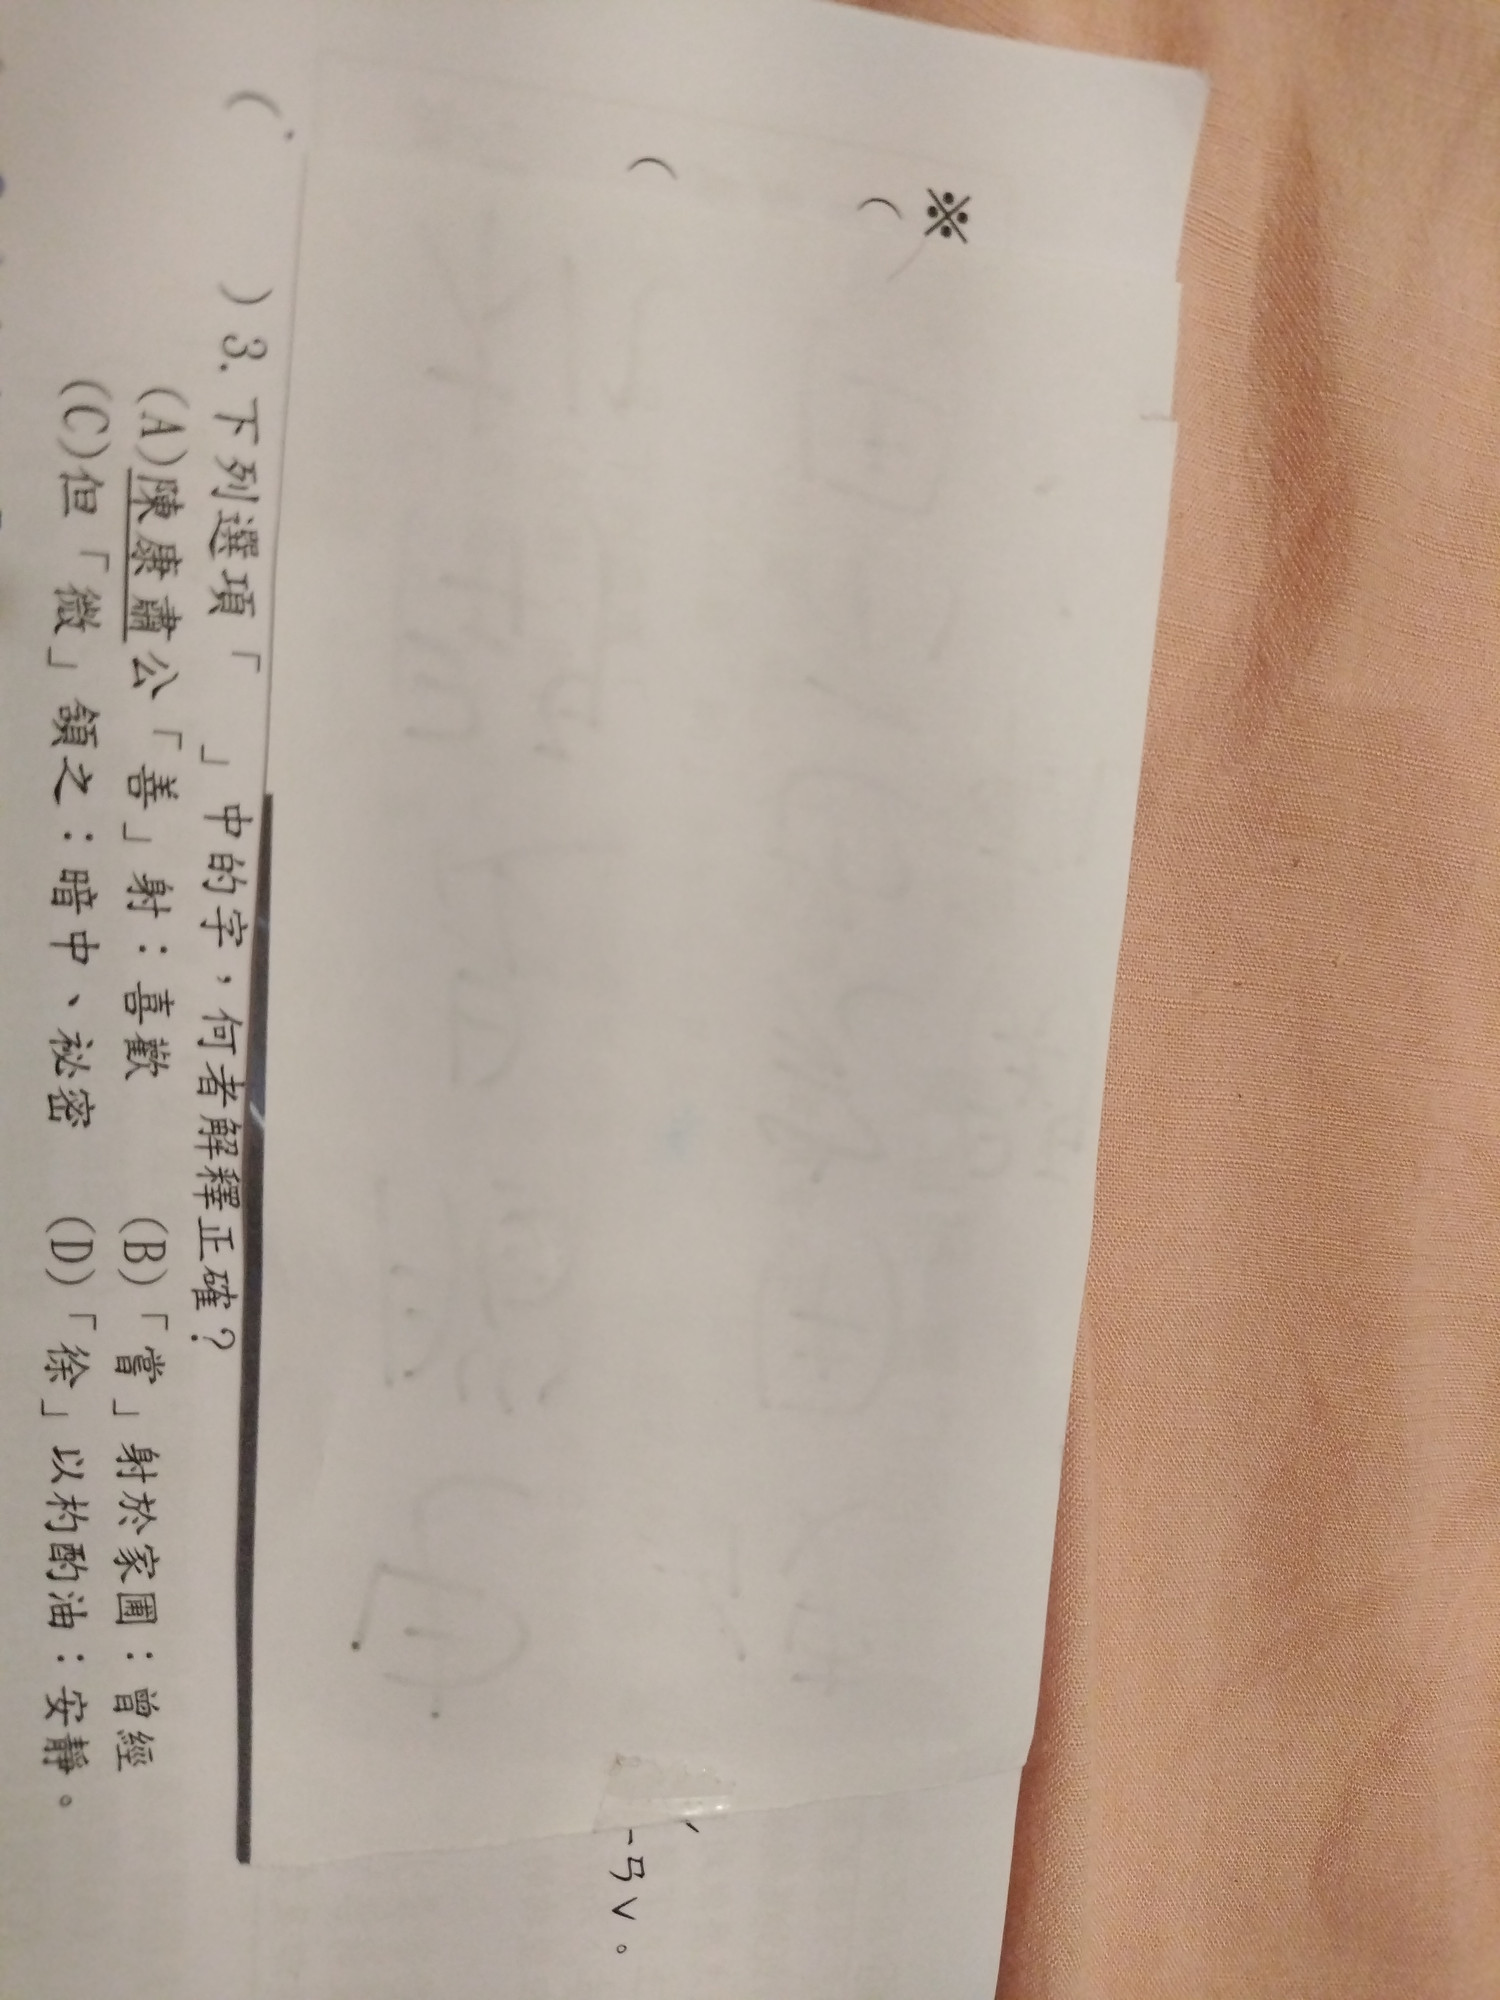 ※
(
(
ㄧㄢˇ。
( ) 3. 下列選項「 」中的字，何者解釋正確？
(A)陳康肅公「善」射：喜歡 (B)「當」射於家圃：曾經
(C)但「微」頷之：暗中、祕密 (D)「徐」以杓酌油：安靜。